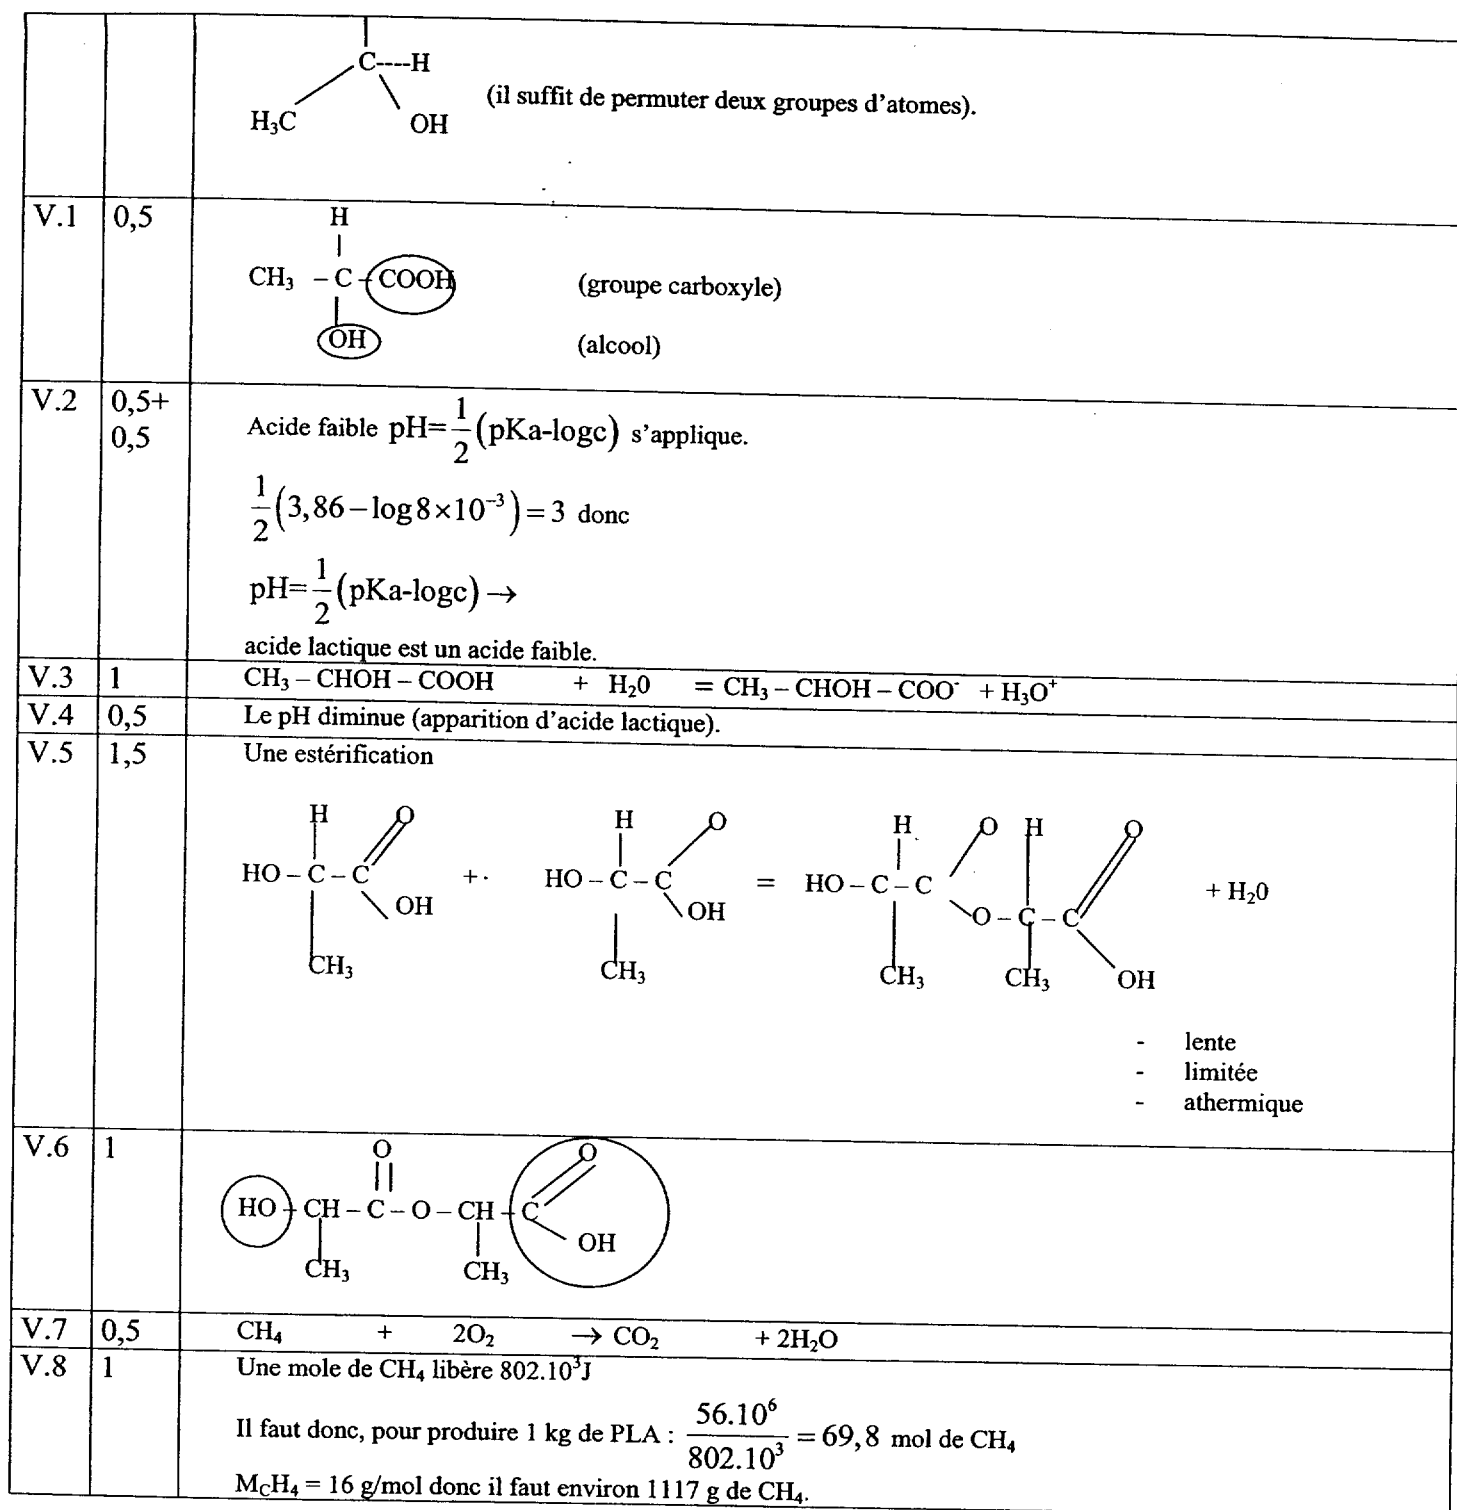 C----H
(il suffit de permuter deux groupes d'atomes).
H₃C OH
V.1 0,5 H
CH₃ – C – COOH (groupe carboxyle)
OH (alcool)
V.2 0,5+ 0,5 Acide faible pH=1/2(pKa-logc) s'applique.
1/2(3,86–log8×10⁻³)=3 donc
pH=1/2(pKa-logc)→
acide lactique est un acide faible.
V.3 1 CH₃ – CHOH – COOH + H₂0 = CH₃ – CHOH – COO⁻ + H₃O⁺
V.4 0,5 Le pH diminue (apparition d'acide lactique).
V.5 1,5 Une estérification
H O H O H O H O
HO – C – C + · HO – C – C = HO – C – C O – C – C + H₂0
OH OH
CH₃ CH₃ CH₃ CH₃ OH
- lente
- limitée
- athermique
V.6 1 O O
HO – CH – C – O – CH – C
OH
CH₃ CH₃
V.7 0,5 CH₄ + 2O₂ → CO₂ + 2H₂O
V.8 1 Une mole de CH₄ libère 802.10³J
Il faut donc, pour produire 1 kg de PLA : 56.10⁶/802.10³ = 69,8 mol de CH₄
M_CH₄ = 16 g/mol donc il faut environ 1117 g de CH₄.